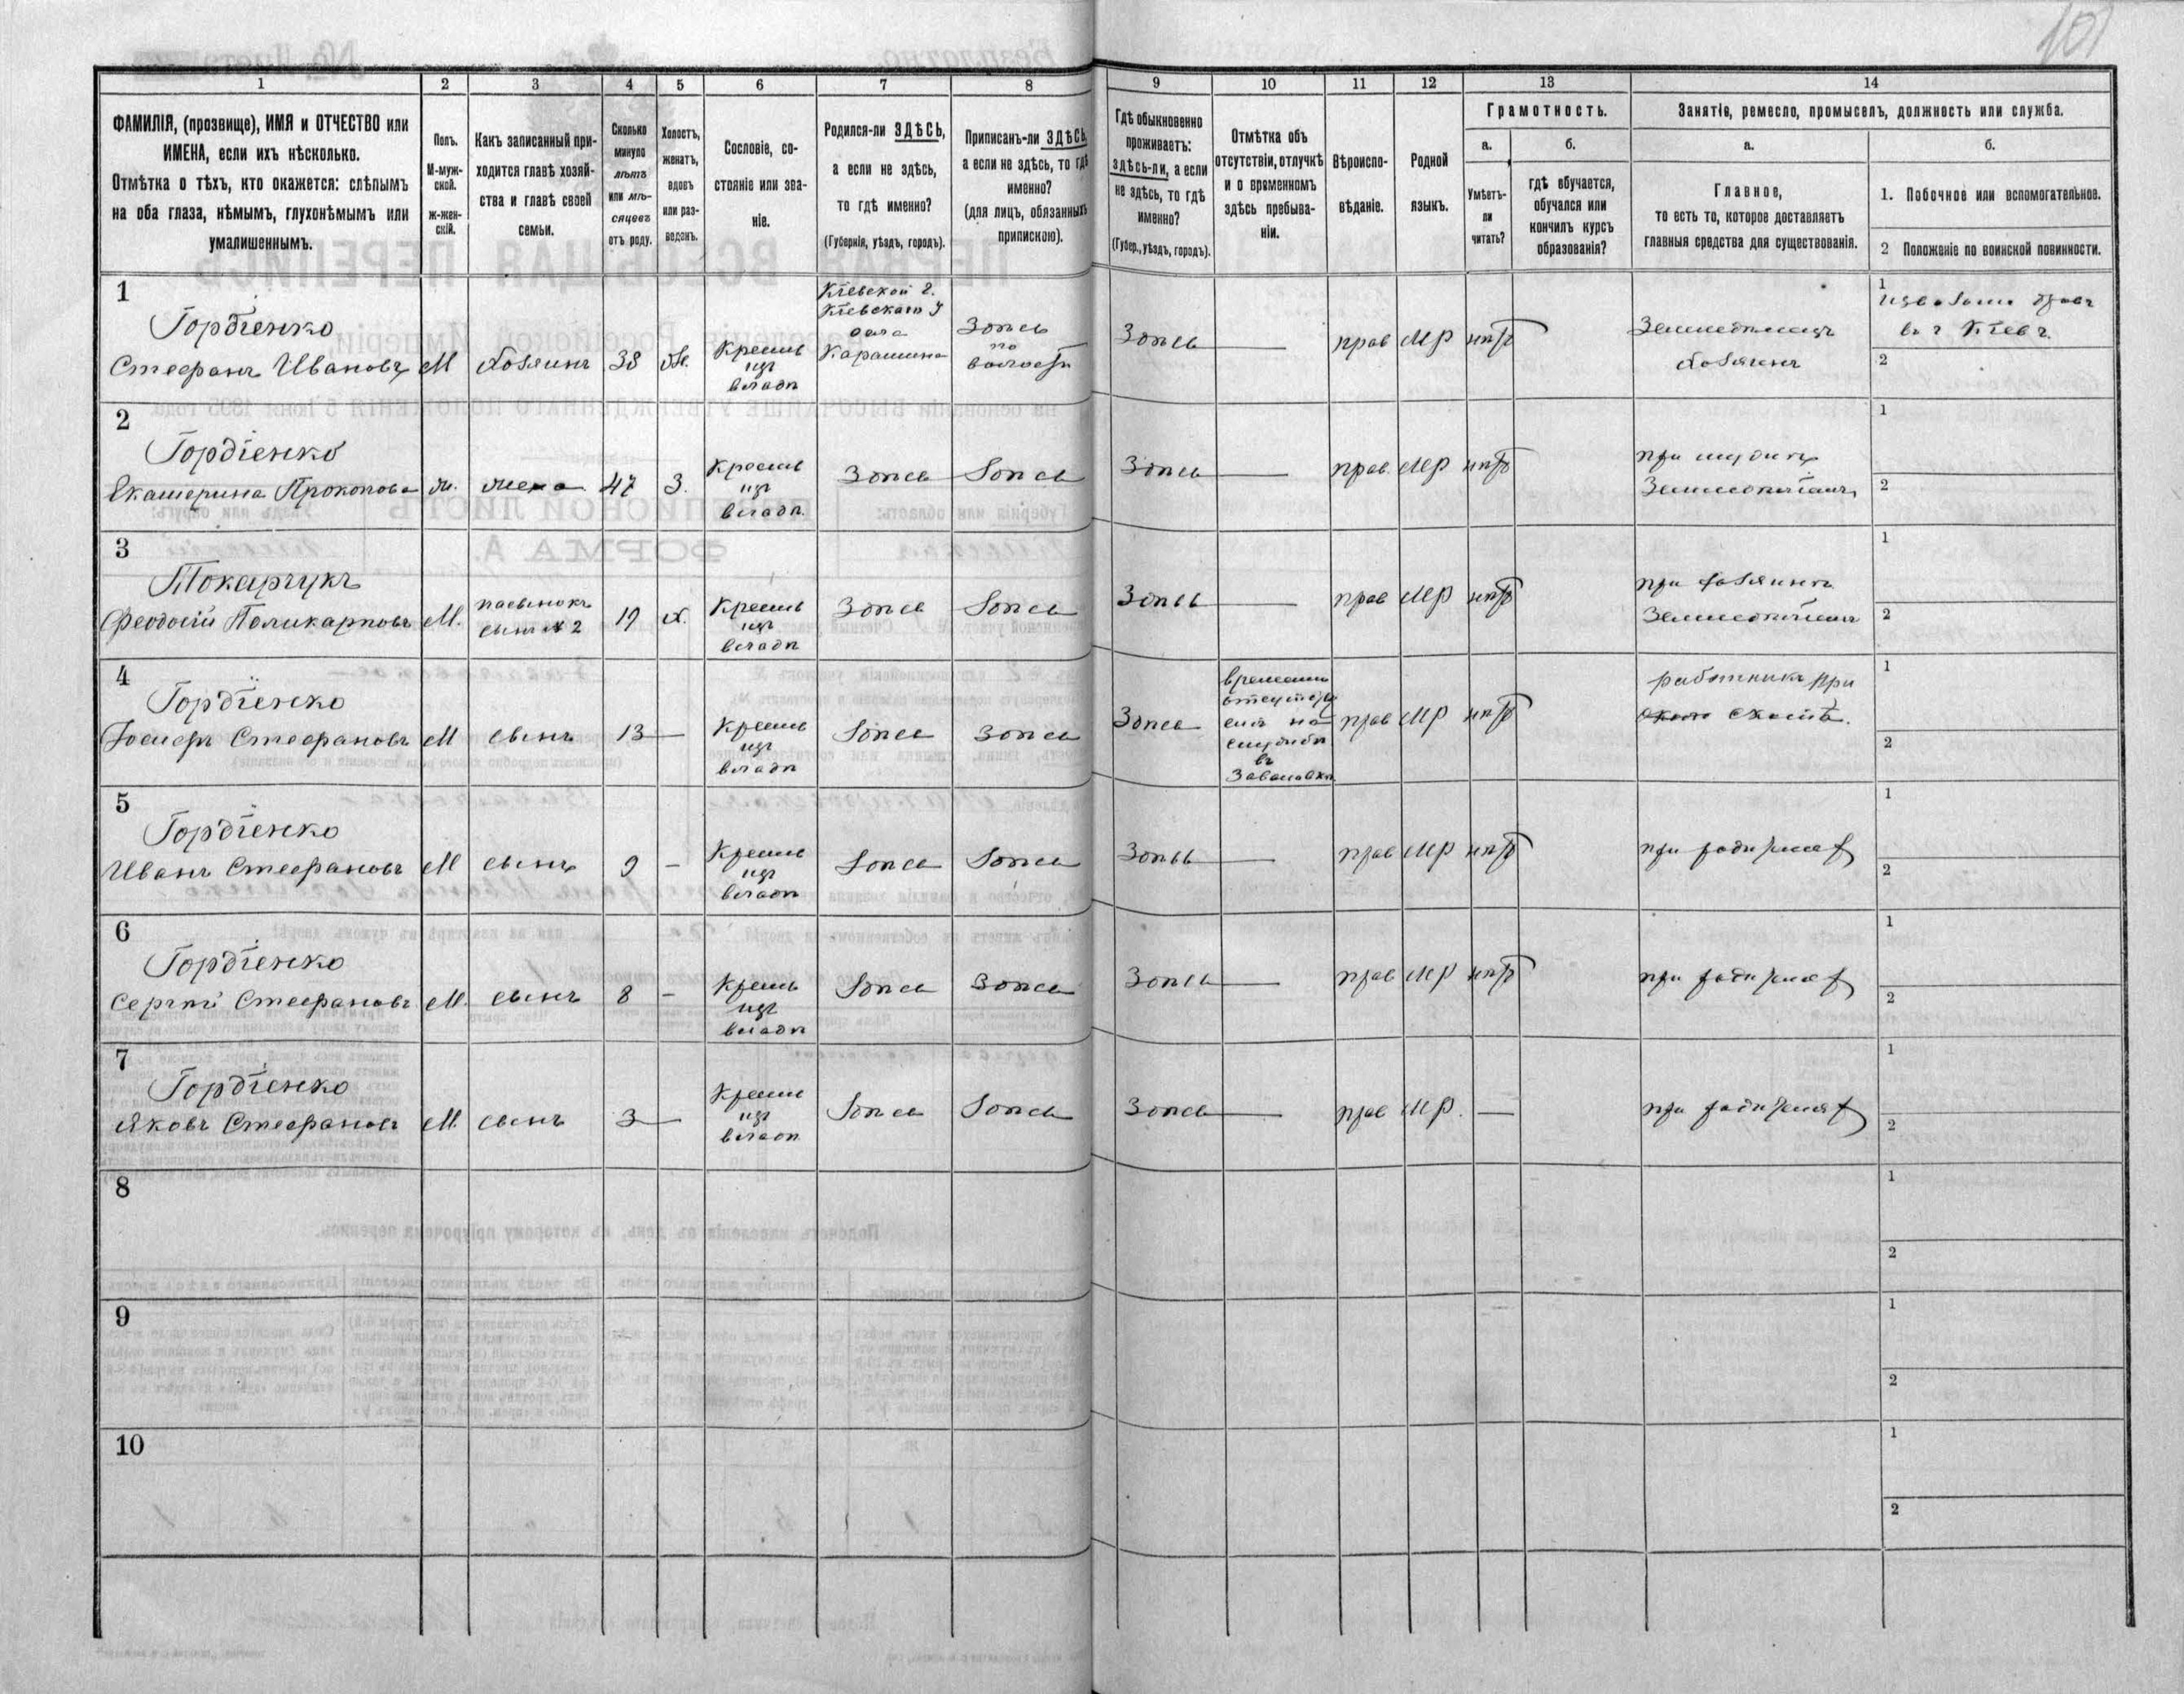 101
1 2 3 4 5 6 7 8 9 10 11 12 13 14
ФАМИЛІЯ, (прозвище), ИМЯ и ОТЧЕСТВО или
ИМЕНА, если ихъ нѣсколько.
Отмѣтка о тѣхъ, кто окажется: слѣпымъ
на оба глаза, нѣмымъ, глухонѣмымъ или
умалишеннымъ.
Полъ.
М-муж-
ской.
Ж-жен-
скій.
Какъ записанный при-
ходится главѣ хозяй-
ства и главѣ своей
семьи.
Сколько
минуло
лѣтъ
или мѣ-
сяцевъ
отъ роду.
Холостъ,
женатъ,
вдовъ
или раз-
веденъ.
Сословіе, со-
стояніе или зва-
ніе.
Родился-ли ЗДѢСЬ,
а если не здѣсь,
то гдѣ именно?
(Губернія, уѣздъ, городъ).
Приписанъ-ли ЗДѢСЬ,
а если не здѣсь, то гдѣ
именно?
(для лицъ, обязанныхъ
припискою).
Гдѣ обыкновенно
проживаетъ:
здѣсь-ли, а если
не здѣсь, то гдѣ
именно?
(Губер., уѣздъ, городъ).
Отмѣтка объ
отсутствіи, отлучкѣ
и о временномъ
здѣсь пребыва-
ніи.
Вѣроиспо-
вѣданіе.
Родной
языкъ.
Грамотность.
а.
Умѣетъ-
ли
читать?
б.
гдѣ обучается,
обучался или
кончилъ курсъ
образованія?
Занятіе, ремесло, промыселъ, должность или служба.
а.
Главное,
то есть то, которое доставляетъ
главныя средства для существованія.
б.
1. Побочное или вспомогательное.
2 Положеніе по воинской повинности.
1
Гордіенко
Стефанъ Ивановъ М хозяинъ 38 ж.
Крестья
изъ
владѣ
Кіевской г.
Кіевскаго у
села
Карашина
Здѣсь
по
волости
Здѣсь — прав МР нѣтъ
Земледѣлецъ
хозяинъ
1
дровъ
въ г Кіевъ.
2
2
Гордіенко
Екатерина Прокопова ж. жена 47 З.
Крестья
изъ
владѣ
Здѣсь Здѣсь Здѣсь — прав. МР нѣтъ
при мужѣ
1
2
3
Токарчукъ
Феодосій Поликарповъ М.
пасынокъ
сынъ № 2
19 х.
Крестья
изъ
владѣ
Здѣсь Здѣсь Здѣсь — прав МР нѣтъ
при хозяинѣ
1
2
4
Гордіенко
Іосифъ Стефановъ М сынъ 13 —
Крестья
изъ
владѣ
Здѣсь Здѣсь Здѣсь
временно
на
службѣ
въ
Заваловкѣ
прав МР нѣтъ
работникъ при
скотѣ.
1
2
5
Гордіенко
Иванъ Стефановъ М сынъ 9 —
Крестья
изъ
владѣ
Здѣсь Здѣсь Здѣсь — прав МР нѣтъ
при родителях
1
2
6
Гордіенко
Сергѣй Стефановъ М. сынъ 8 —
Крестья
изъ
владѣ
Здѣсь Здѣсь Здѣсь — прав МР нѣтъ
при родителях
1
2
7
Гордіенко
Яковъ Стефановъ М. сынъ 3 —
Крестья
изъ
владѣ
Здѣсь Здѣсь Здѣсь — прав МР. —
при родителях
1
2
8
1
2
9
1
2
10
1
2